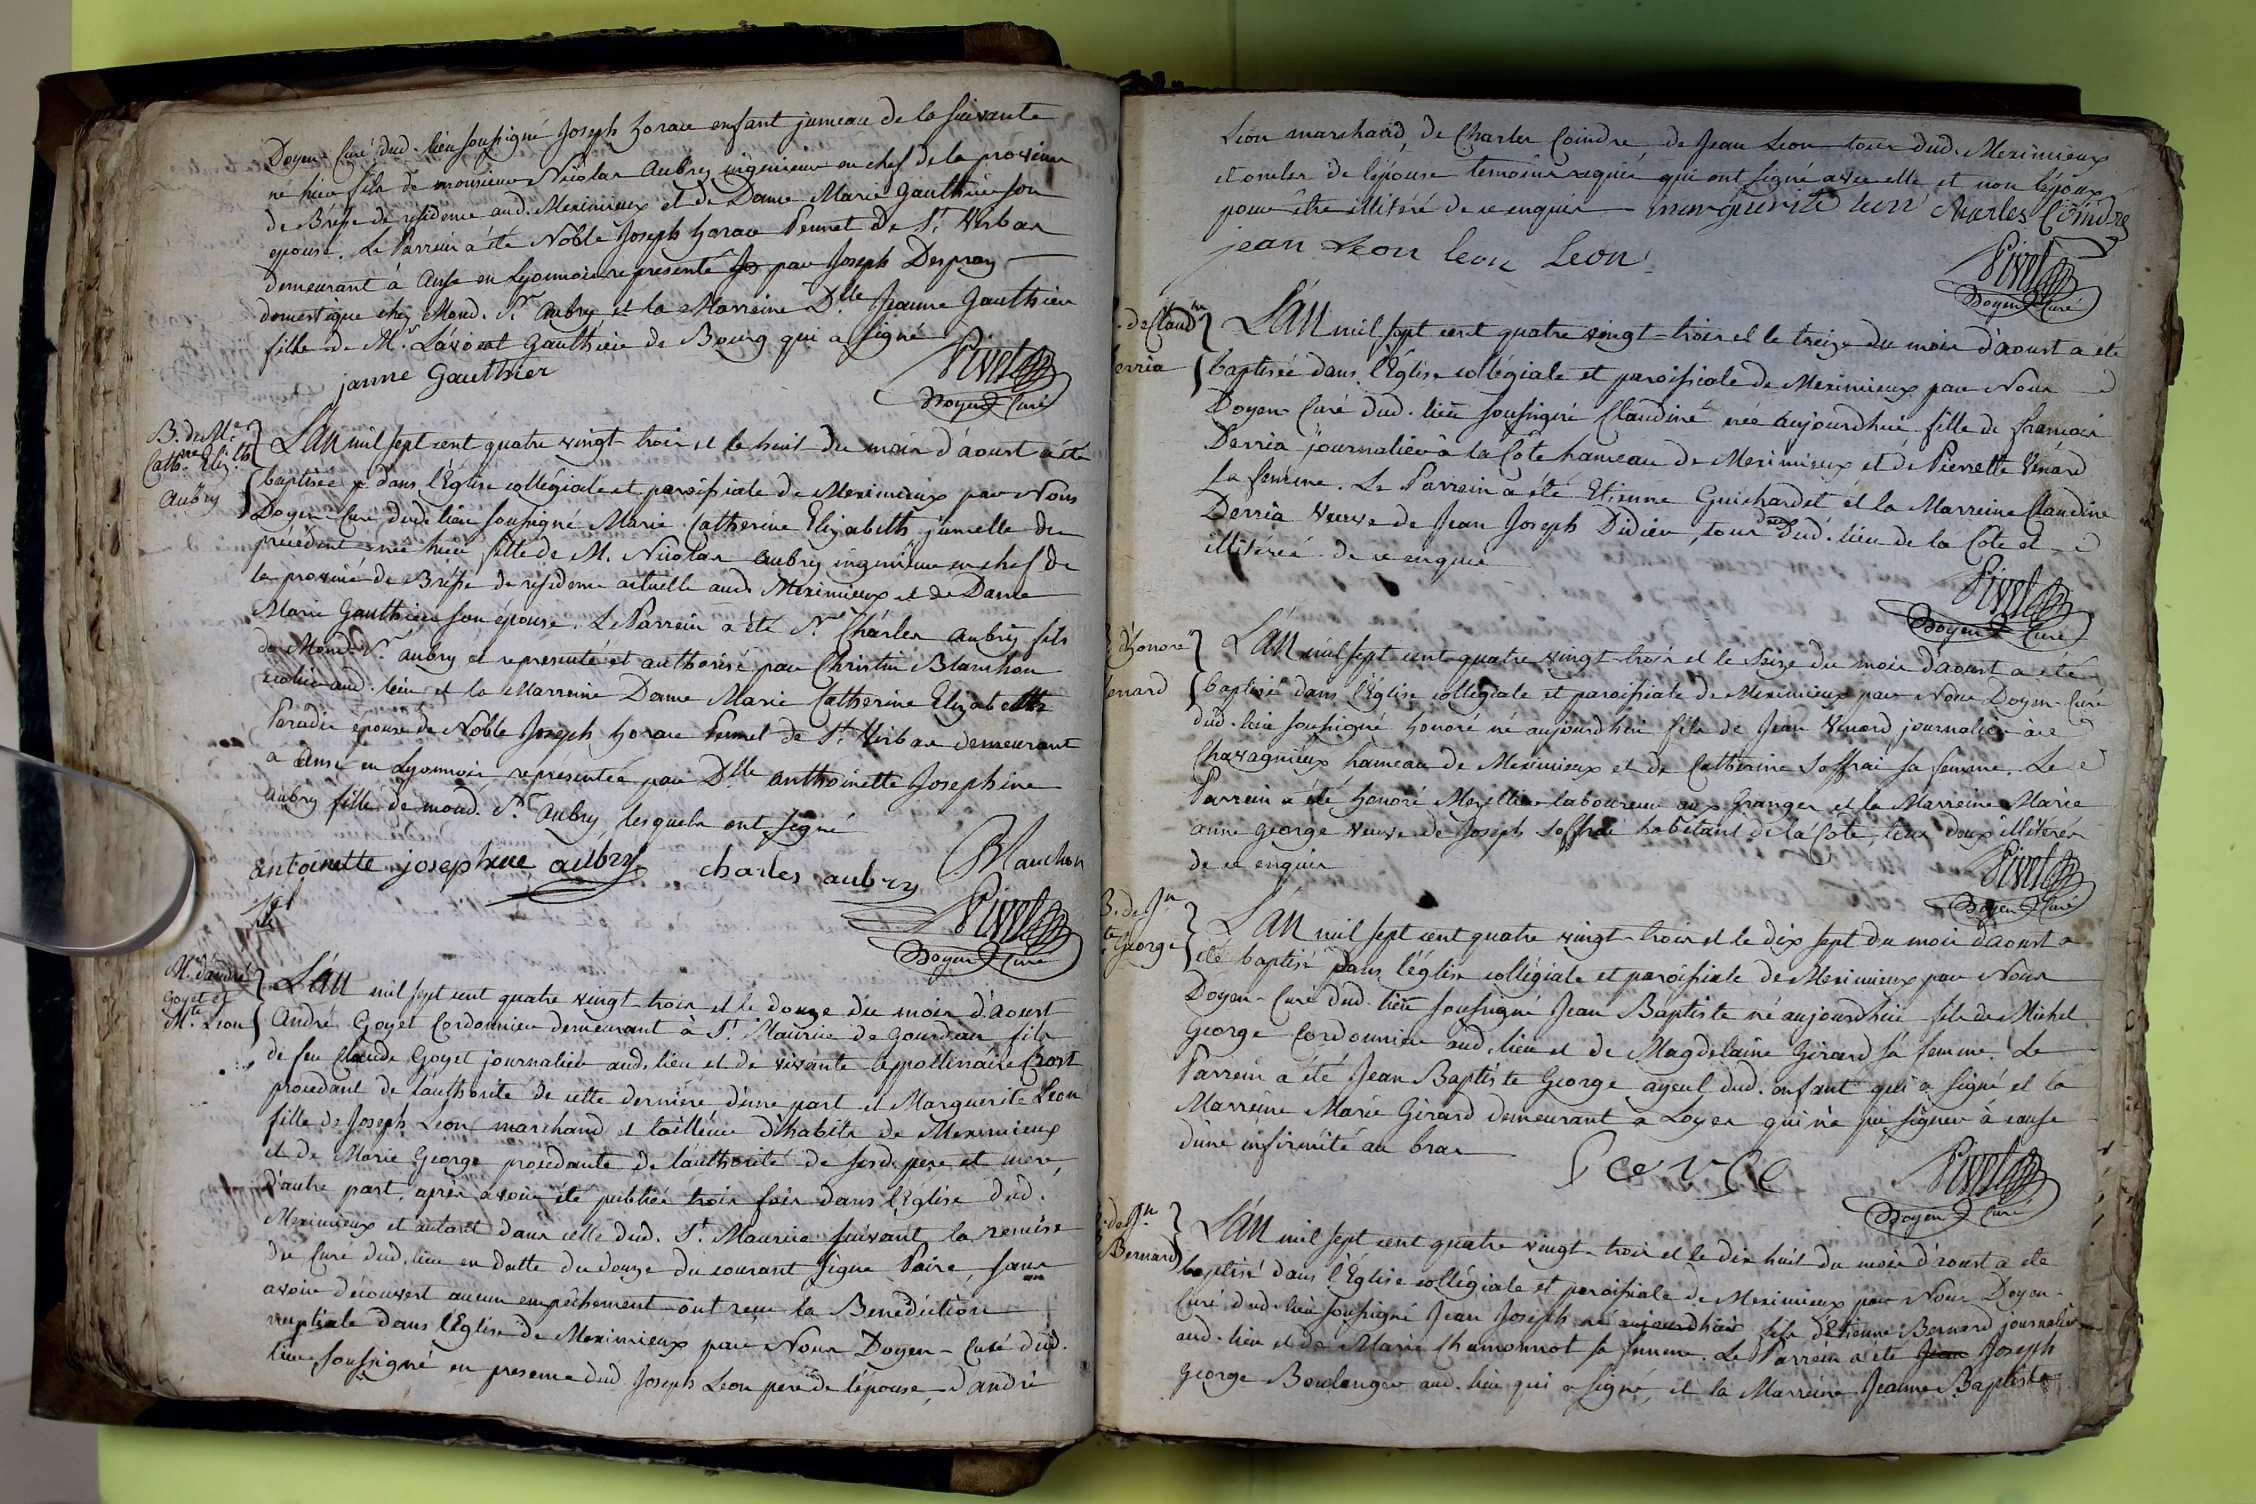 Doyen-Curé dud. lieu soussigné Joseph horace enfant jumeau de la suivante
né hier fils de monsieur Nicolas Aubry ingénieur en chef de la province
de Bresse de residence aud. Meximieux et de Dame Marie Gauthier son
epouse. Le Parrein a été Noble Joseph horace Pennet de St. Verbas
demeurant à Anse en Lyonnois representé par Joseph Despray
domestique chez Mond. Sr. Aubry et la Marreine Dlle Jeanne Gauthier
fille de Mr. L'avocat Gauthier de Bourg qui a signé
janne Gauthier
Pivet
Doyen Curé
B. de Me.
Cathne Elizth
Aubry
L'An mil sept cent quatre vingt-trois et le huit du mois d'aoust a été
baptisée dans l'Eglise collégiale et paroissiale de Meximieux par Nous
Doyen-Curé dud. lieu soussigné Marie Catherine Elizabeth jumelle du
précédent née hier fille de M. Nicolas Aubry ingénieur en chef de
la province de Bresse de residence actuelle aud. Meximieux et de Dame
Marie Gauthier son épouse. Le Parrein a été Sr. Charles Aubry fils
de Mond. Sr. Aubry et representé et authorisé par Christin Blanchon
aud. lieu et la Marreine Dame Marie Catherine Elizabeth
Paradis épouse de Noble Joseph horace Pennet de St. Verbas demeurant
a Anse en Lyonnois representée par Dlle anthoinette Josephine
Aubry fille de mond. Sr. Aubry lesquels ont signé
antoinette josephine aubry charles aubry Blanchon
Pivet
Doyen Curé
M. d'andré
Goyet et
Mte. Leon
L'An mil sept cent quatre vingt-trois et le douze du mois d'aoust
André Goyet Cordonnier demeurant à St. Maurice de Gourdan fils
de feu Claude Goyet journalier aud. lieu et de vivante Appollinaire Crost
procedant de l'authorité de cette derniére d'une part et Marguerite Leon
fille de Joseph Leon marchand et tailleur d'habits de Meximieux
et de Marie George procedante de l'authorité de sesd. pere et mere,
d'autre part, après avoir été publiés trois fois dans l'Eglise dud.
Meximieux et autant dans celle dud. St. Maurice suivant la remise
du Curé dud. lieu en datte du douze du courant signé Paire, sans
avoir découvert aucun empêchement ont reçu la Bénédiction
nuptiale dans l'Eglise de Meximieux par Nous Doyen-Curé dud.
lieu soussigné en presence dud. Joseph Leon pere de l'épouse, d'andré
Léon marchand, de Charles Coindre de Jean Leon tous dud. Meximieux
et oncles de l'épouse temoins requis qui ont signé avec elle et non l'époux
pour être illitéré de ce enquis marguerite leon charles Coindre
jean Leon leon Leon
Pivet
Doyen Curé
. de Claudne
erria
L'An mil sept cent quatre vingt-trois et le treize du mois d'aoust a été
baptisée dans l'Eglise collégiale et paroissiale de Meximieux par Nous
Doyen-Curé dud. lieu soussigné Claudine née aujourdhui fille de françois
Derria journalier à la Côte hameau de Meximieux et de Pierrette Venard
sa femme. Le Parrein a été Etienne Guichardet et la Marreine Claudine
Derria veuve de Jean Joseph Didier, tous deux dud. lieu de la Cote et
illitérés de ce enquis
Pivet
Doyen Curé
d'honoré
enard
L'An mil sept cent quatre vingt-trois et le seize du mois d'aoust a été
baptisé dans l'Eglise collegiale et paroissiale de Meximieux par Nous Doyen-Curé
dud. lieu soussigné honoré né aujourdhui fils de Jean Venard journalier à
Chavagnieux hameau de Meximieux et de Catherine Soffrai sa femme. Le
Parrein a été honoré Mexillier laboureur aux Granges et la Marreine Marie
anne george veuve de Joseph Soffrai habitant de la Côte, tous deux illitérés
de ce enquis
Pivet
Doyen Curé
B. de Jn
te George
L'An mil sept cent quatre vingt-trois et le dix sept du mois d'aoust a
été baptisé dans l'église collégiale et paroissiale de Meximieux par Nous
Doyen-Curé dud. lieu soussigné Jean Baptiste né aujourdhui fils de Michel
George Cordonnier aud. lieu et de Magdelaine Girard sa femme. Le
Parrein a été Jean Baptiste George ayeul dud. enfant qui a signé et la
Marreine Marie Girard demeurant a Loyes qui n'a pu signer à cause
d'une infirmité au bras
Pivet
Doyen Curé
. de Jn.
Bernard
L'An mil sept cent quatre vingt-trois et le dix huit du mois d'aoust a été
baptisé dans l'Eglise collégiale et paroissiale de Meximieux par Nous Doyen-
Curé dud. lieu soussigné Jean Joseph né aujourdhui fils d'Etienne Bernard journalier
aud. lieu et de Marie Chamonnot sa femme. Le Parrein a été Jean Joseph
George Boulanger aud. lieu qui a signé, et la Marreine Jeanne Baptiste